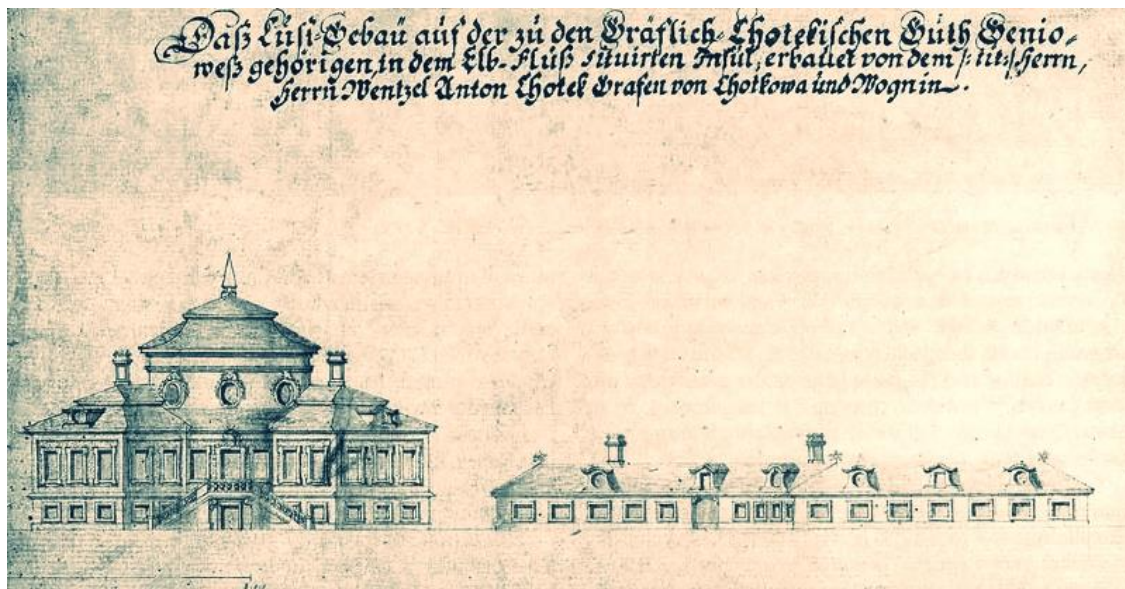 Daß Lust-Gebaü auf der zu den Gräflich-Chotekischen Güth Benio-
weß gehörigen, in dem Elb-Flüß situirten Insul, erbauet von dem /:tit:/ Herrn,
Herrn Wentzel Anton Chotek Grafen von Chotkowa und Wognin.